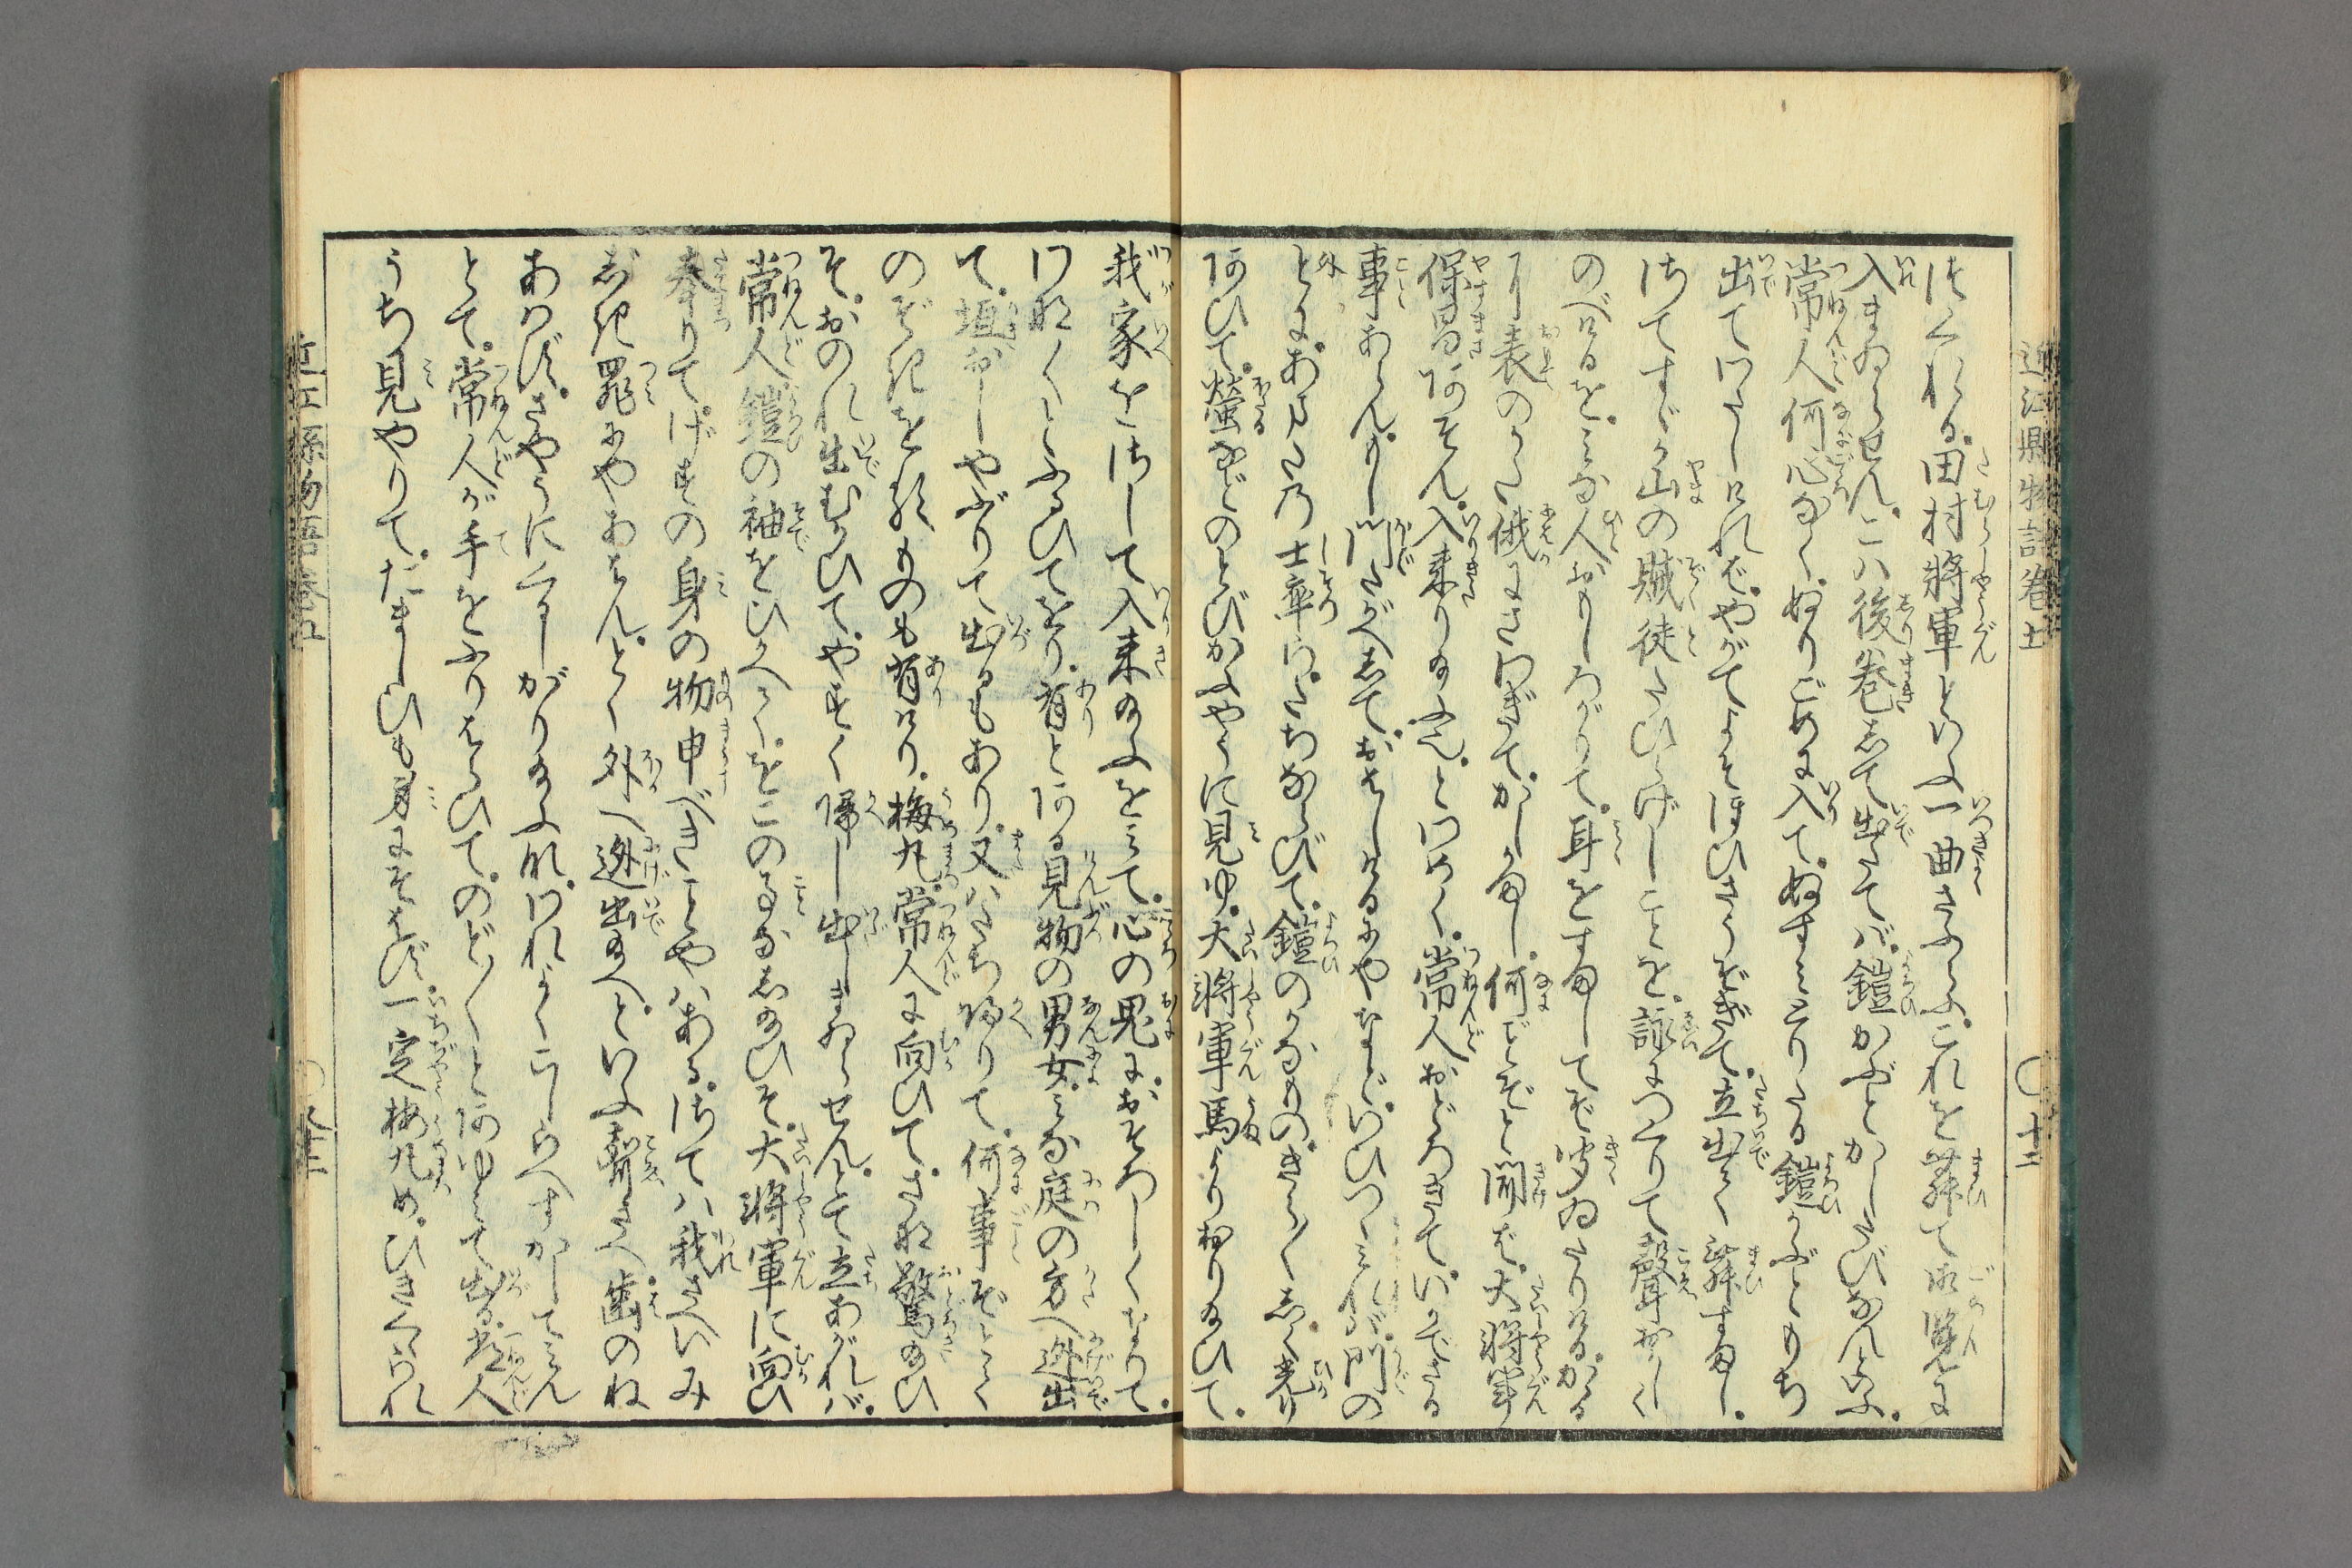 近江県物語巻五 〇十三
つくれる。田村将軍といふ一曲さふらふ。これを舞て御覧に
入まゐらせん。こハ後巻きて出てバ。鎧かぶとかしたびなんといふ。
常人何心なく。ぬりごめに入て。ぬすミとりたる鎧かぶともち
出てわたしけれバ。やがてよそほひさうぞきて。立出て舞すまし。
はてすゞか山の賊徒たひらげしことを。謡につくりて声おかしく
のべけるを。みな人おもしろがりて。耳をすましてぞ聞ゐたりける。かゝる
に表のかた俄にさわぎて。かしかまし。何ぞと聞バ。大将軍
保昌あそん。入来り給ふ。とわめく。常人おどろきて。いかでさる
事あらん。もし門たがへして。おはしけるにやなど。いひつゝみれバ。門の
とにあまたの士卒。うちならびて。鎧のかなもの。きら〳〵しく光り
あひて。蛍などのとびかふやうに見ゆ。大将軍馬よりおり給ひて。
我家をさして入来給ふをみて。心の鬼におそろしくなりて。
わなゝくふるひてをり。有とある見物の男女みな庭の方へ迯出
て。垣おしやぶりて出るもあり。又ハたち帰りて。何事ぞととく
のぞきを類ものも有けり。梅丸。常人に向ひて。さな驚給ひ
そ。おのれ出むかひて。やすく帰し出しまゐらせん。とて立あがれバ。
常人鎧の袖をひかへて。をこの事なし給ひそ。大将軍に向ひ
奉りて。げすの身の物申べきことやハある。はてハ我さへいみ
じき罪にやあはん。とく外へ迯出給へといふ声さへ歯のね
あはず。さやうにくるしがり給ふな。われよくこしらへすかしてん
とて。常人が手をふりはらひて。のど〳〵とあゆミて出る。常人
うち見やりて。だましひも身にそはず。一定梅丸め。ひきくゝられ
近江県物語巻五 〇十三